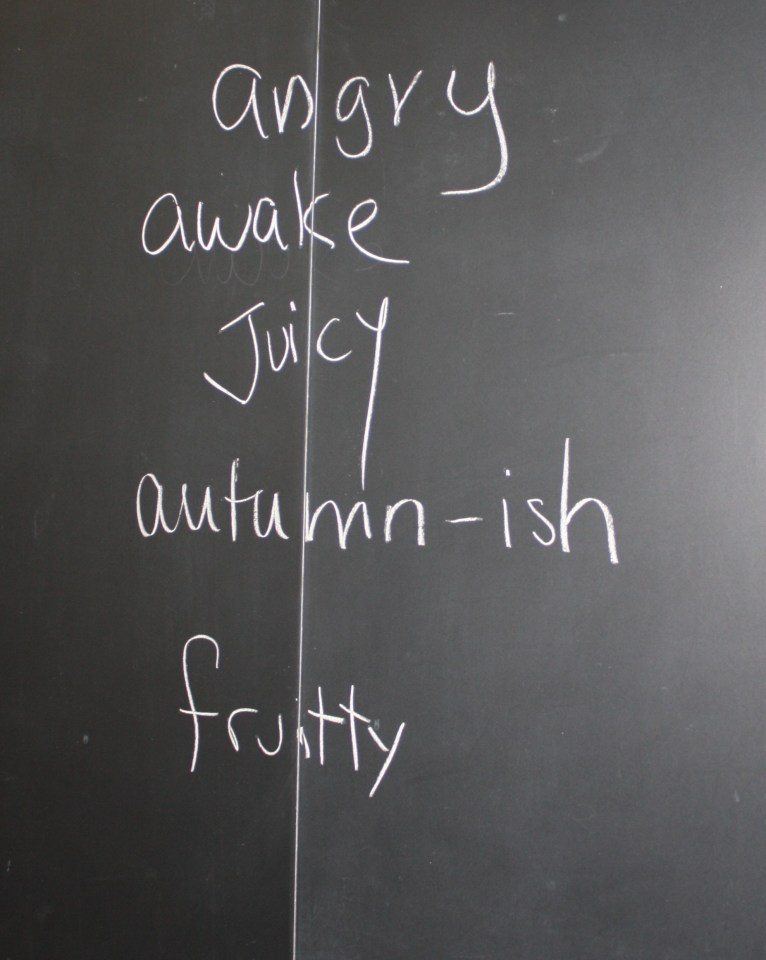 angry
awake
Juicy
autumn-ish
fruitty